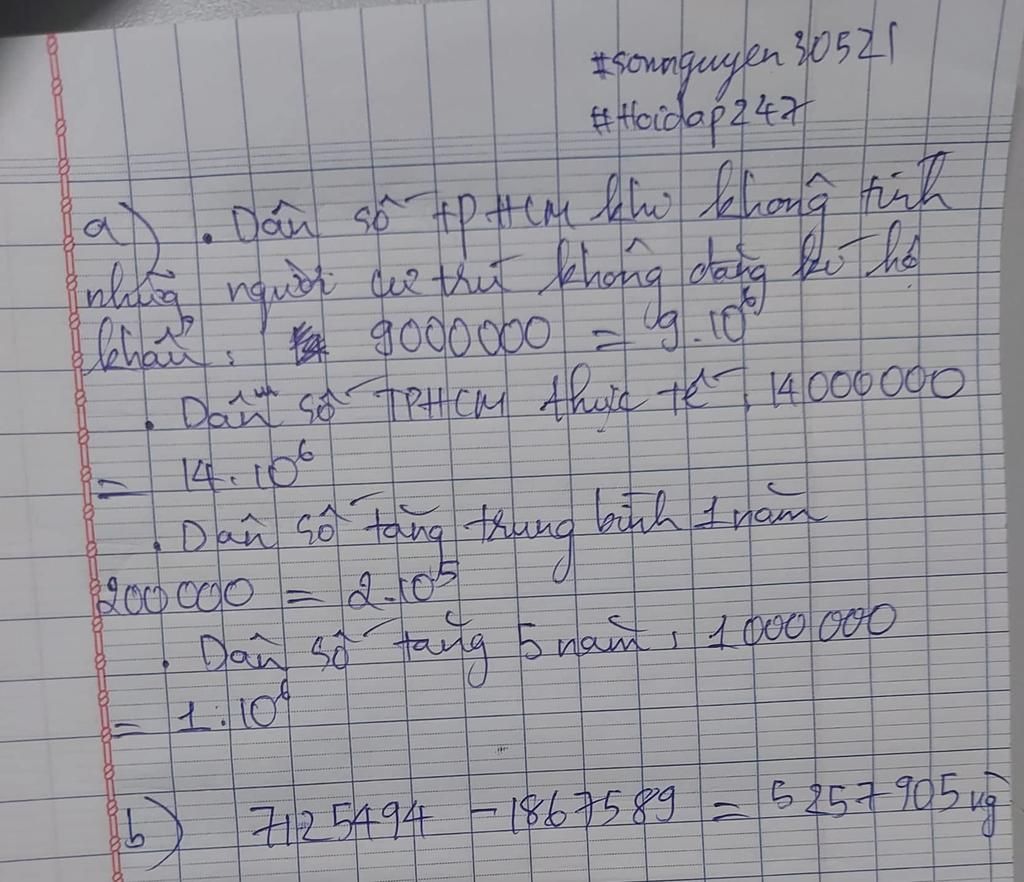 #sonnguyen30521
#Hoidap247
a) . Dân số TPHCM khi không tính
những người cư trú không đăng kí hộ
khẩu: 9000000 = 9.10⁶
. Dân số TPHCM thực tế: 14000000
= 14.10⁶
. Dân số tăng trung bình 1 năm
200000 = 2.10⁵
. Dân số tăng 5 năm: 1000000
= 1.10⁶
b) 7125494 - 1867589 = 5257905 vg